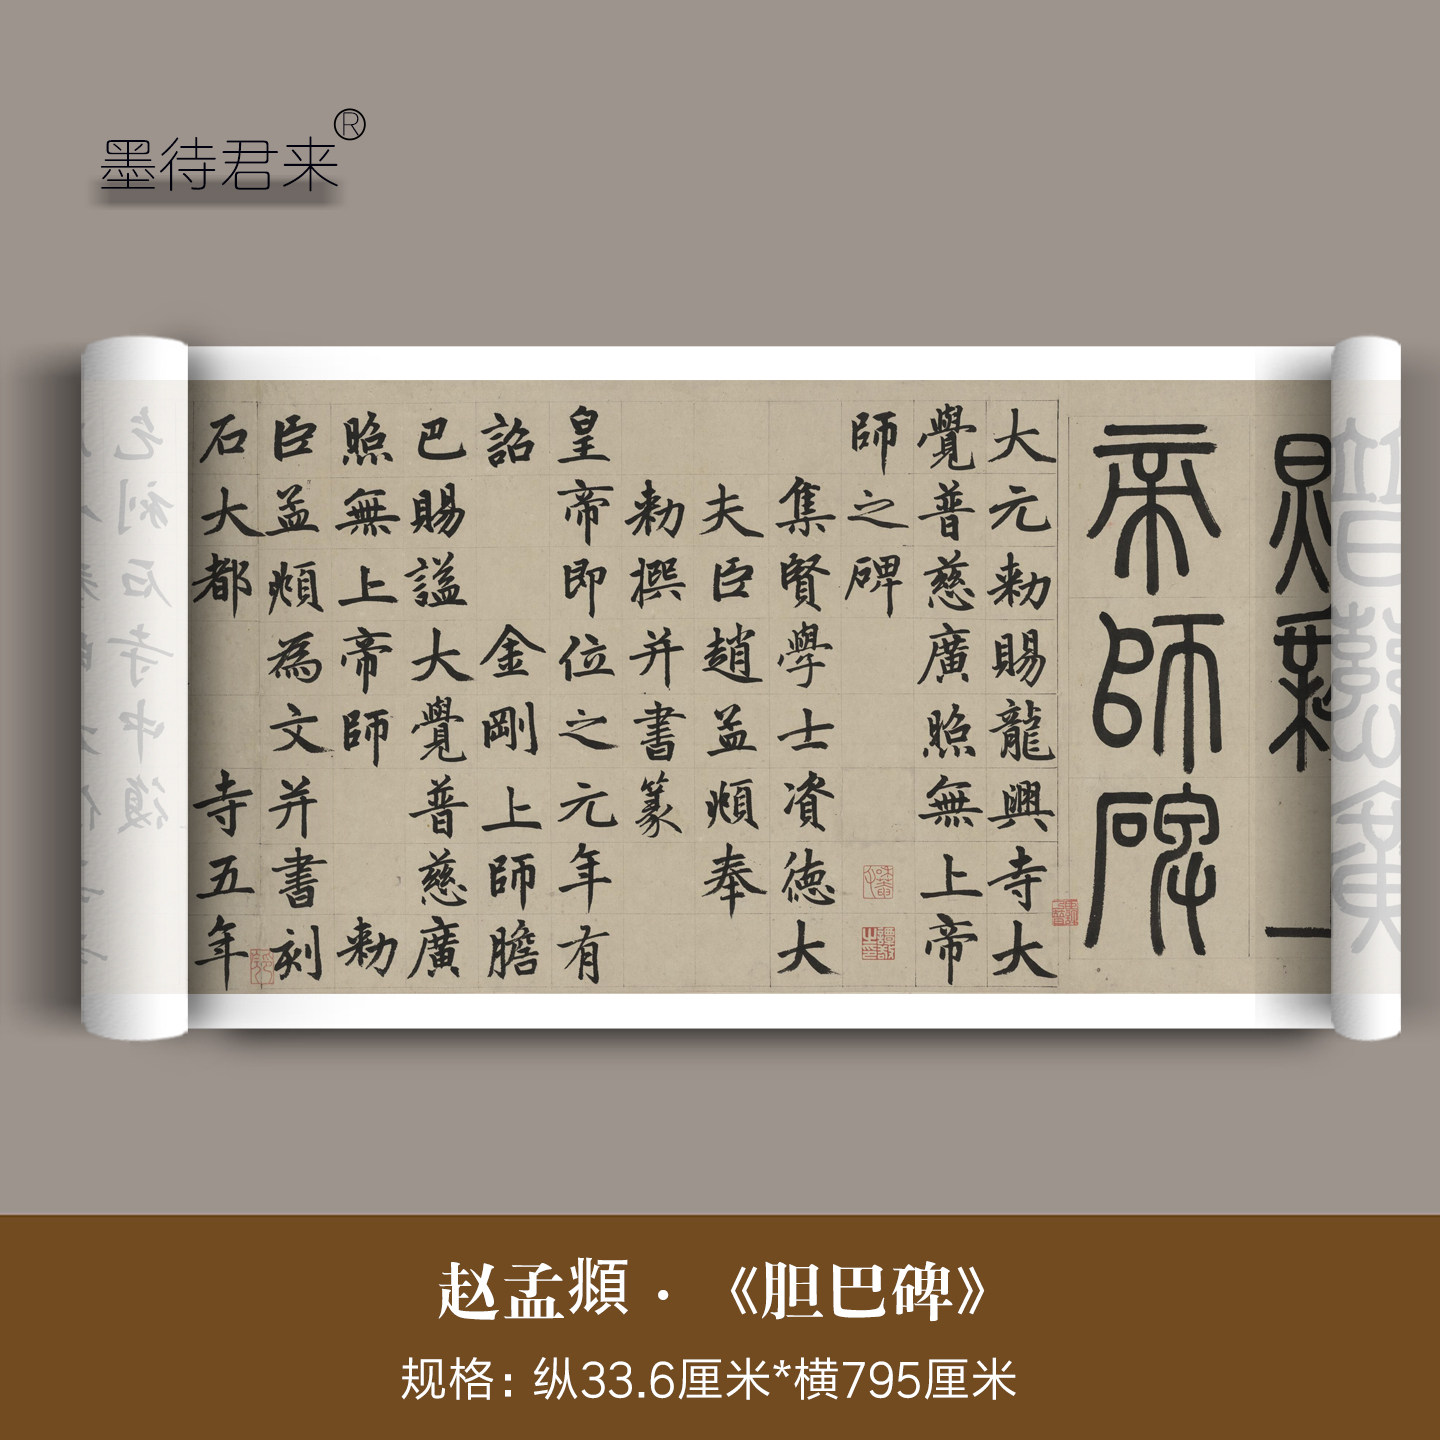 墨待君来®
照無
帝師碑
大元敕賜龍興寺大
覺普慈廣照無上帝
師之碑
集賢學士資德大
夫臣趙孟頫奉
敕撰并書篆
皇帝即位之元年有
詔金剛上師膽
巴賜謚大覺普慈廣
照無上帝師敕
臣孟頫為文并書刻
石大都寺五年
赵孟頫·《胆巴碑》
规格：纵33.6厘米*横795厘米